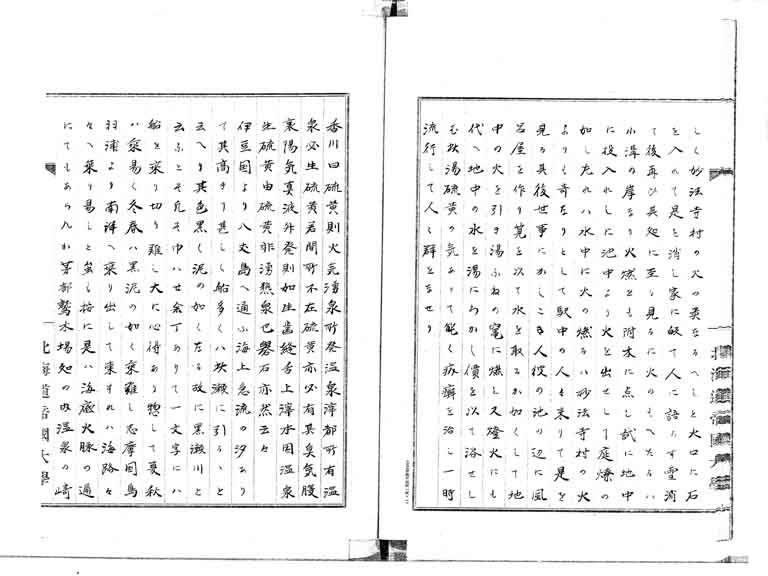 しく妙法寺村の火の美なるへしと火口に石
を入れて是を消し家に皈て人に語らす雪消
て後再ひ其処に至り見るに火のもへたるハ
小溝の岸なり火燃とも附木に点し試に地中
に投入れしに池中より火を出せして庭燎の
如したれハ水中に火の燃るハ妙法寺村の火
よりも奇なりとして駅中の人も来りて是を
見る其後世事にかしこき人役の池の辺に風
呂屋を作り筧を以て水を取るか如くして地
中の火を引き湯ふねの竃に燃し又燈火にも
代へ地中の水を湯にわかし價を以て浴せし
む此湯硫黄の気ありて能く疥癬を治し一時
流行して人く群をなせり
香川曰硫黄則火気湧泉所發温泉滓部所有温
泉必生硫黄若間所不在硫黄亦必有其臭気腹
裏陽気真液外發則如生歯縫舌上滓水因温泉
生硫黄由硫黄非湧熱泉也礬石亦然云々
伊豆国より八丈島へ通ふ海上急流の汐あり
て其高きり甚しく船多くハ此瀬に引るゝと
云へり其色黒く泥の如くなる故に黒瀬川と
云ふとそ凡そ巾ハせ余丁ありて一文字にハ
船を乗り切り難し大に心得あり惣して夏秋
ハ乗易く冬春ハ黒泥の如く乗難し志摩国鳥
羽浦より南洋へ乗り出して東すれハ海路々
々へ乗り易しと茲に按に是ハ海底火脉の通
にてもあらんか茅部鷲木場知の内温泉の崎
北海道帝國大學
北海道帝國大學